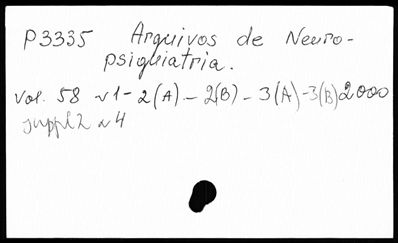 P3335 Arquivos de Neuro-
psiquiatria.
vol. 58 n1-2(A)-2(B)-3(A)-3(B)2000
suppl 2 n4